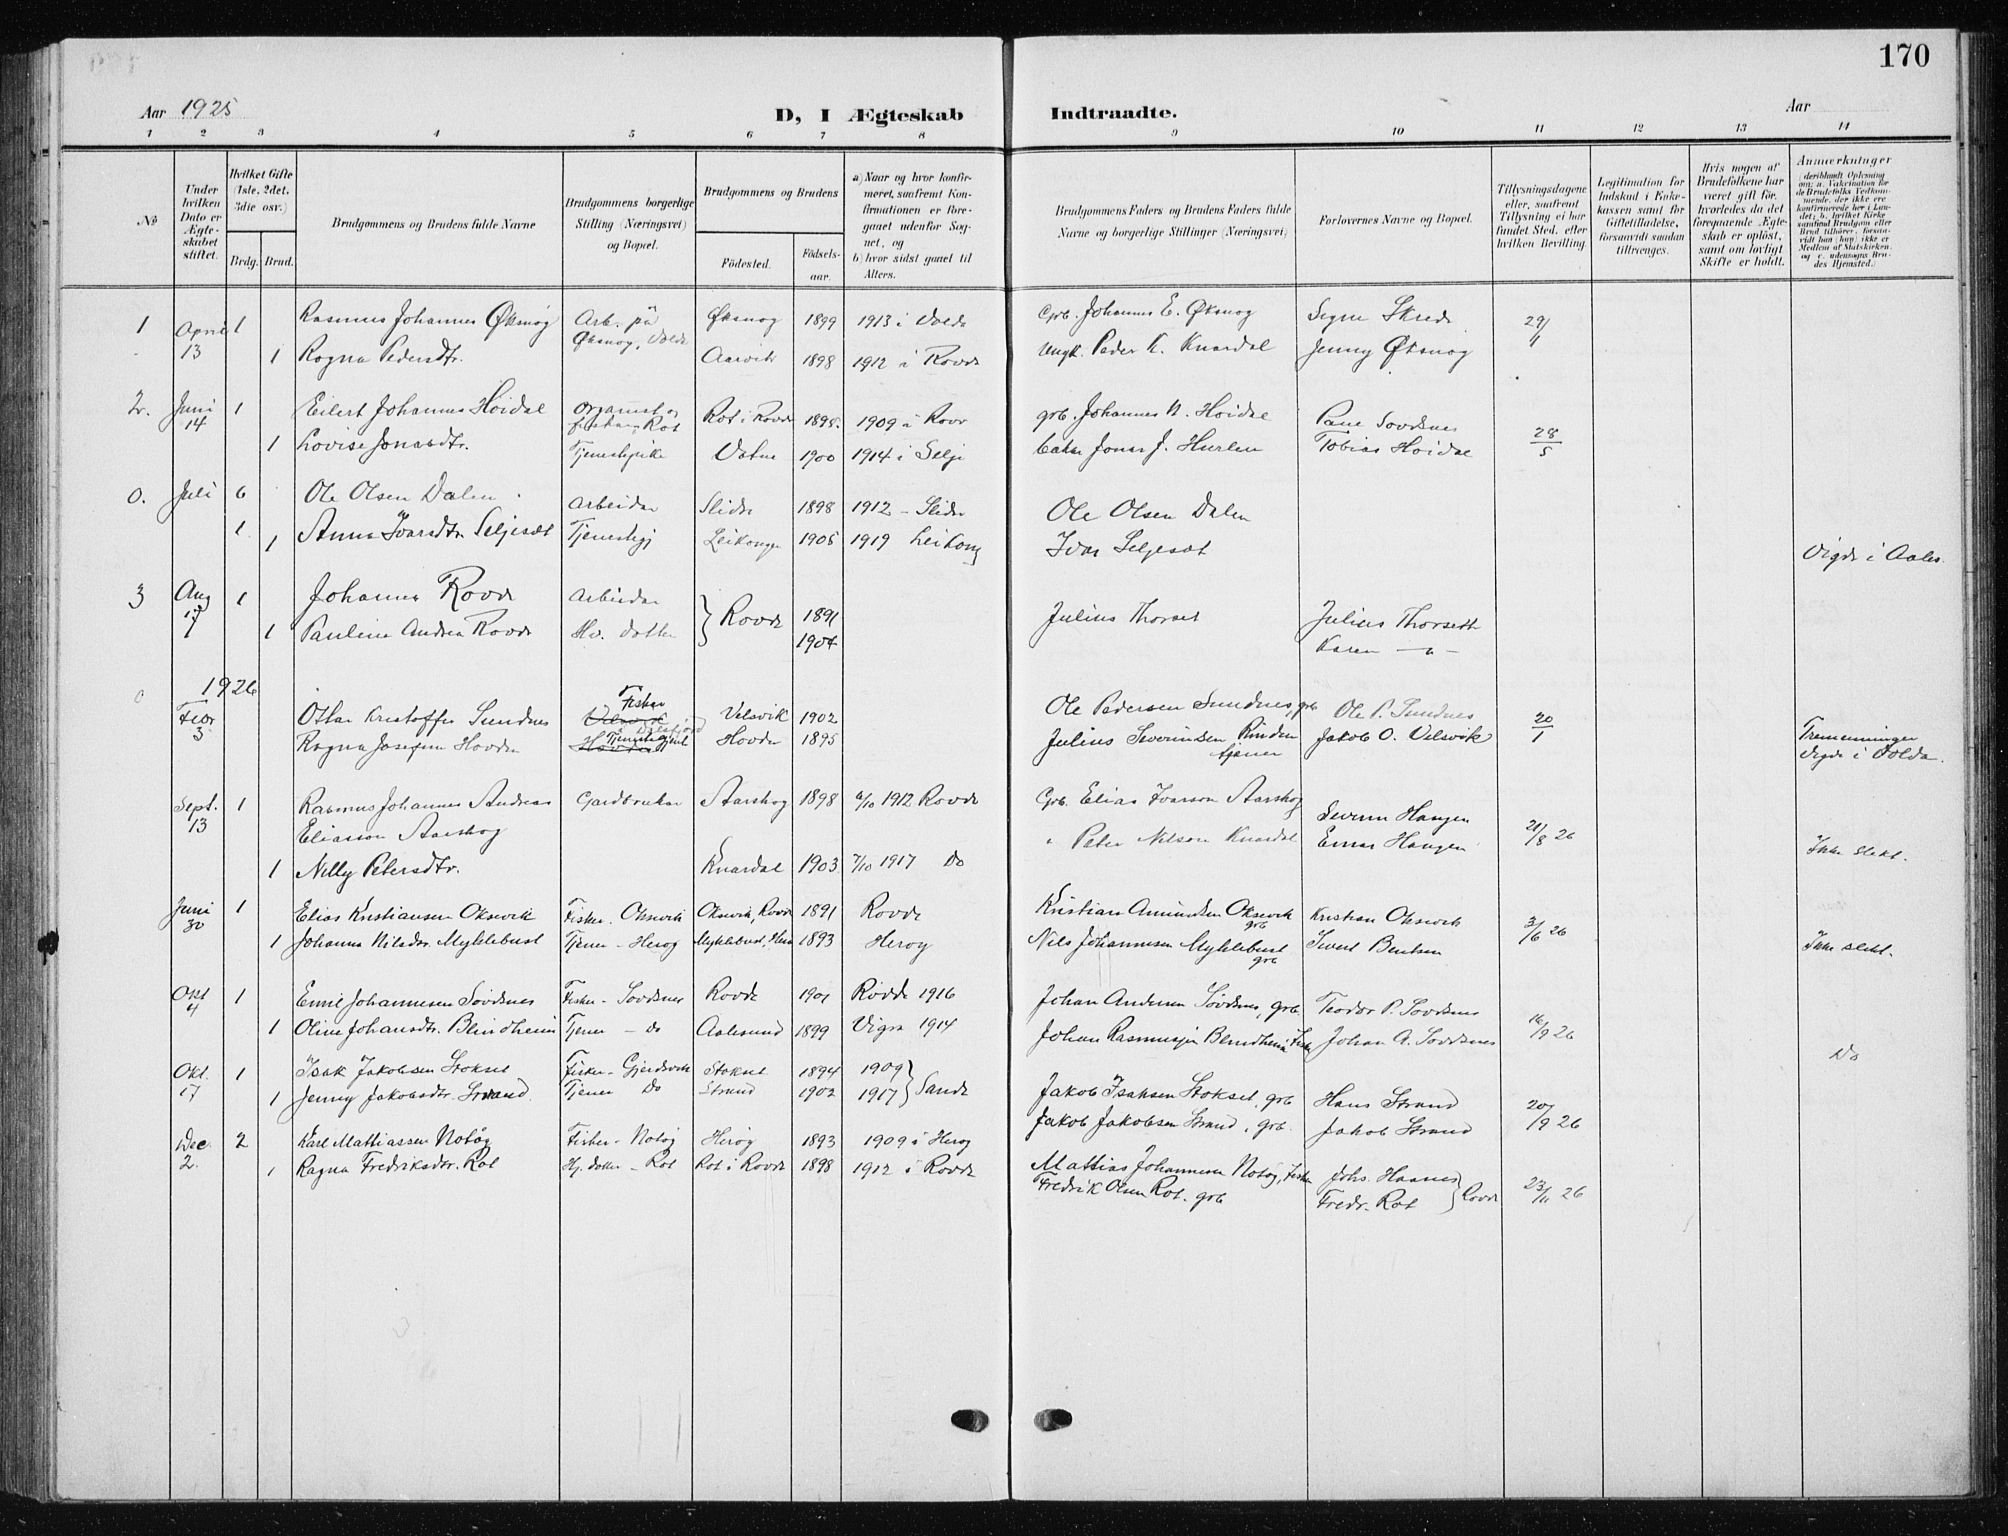 170
Aar 1925
D, I Ægteskab Indtraadte.
Aar
1 2 3 4 5 6 7 8 9 10 11 12 13 14
No
Under hvilken Dato er Ægteskabet stiftet.
Hvilket Gifte (1ste, 2det, 3die osv.)
Brdg. Brud.
Brudgommens og Brudens fulde Navne
Brudgommens borgerlige Stilling (Næringsvei) og Bopæl.
Brudgommens og Brudens
Födested. Födselsaar.
a) Naar og hvor konfirmeret, samfremt Konfirmationen er foregaaet udenfor Sognet, og
b) hvor sidst gaaet til Alters.
Brudgommens Faders og Brudens Faders fulde Navne og borgerlige Stillinger (Næringsvei)
Forlovernes Navne og Bopæl.
Tillysningsdagene eller, samfremt Tillysning ei har fundet Sted, efter hvilken Bevilling.
Legitimation for Indskud i Enkekassen samt for Giftetilladelse, forsaavidt saadan tiltrænges.
Hvis nogen af Brudefolkene har været gift för, hvorledes da det foregaaende Ægteskab er oplöst, samt om lovligt Skifte er holdt.
Anmerkninger
1 April 1 Rasmus Johannes Øksnog Arb. på Øksnog 1899 1913 i Volda Grb. Johannes E. Øksnog Signe Skrede 29/4
13 Øksnog, Volda
1 Ragna Pedersdtr. Aarvik 1898 1912 i Rovde Ungk. Peder K. Knardal Jenny Øksnog
2. Juni 1 Eilert Johannes Höidal Organist og Rot i Rovde 1895. 1909 i Rovd grb. Johannes N. Höidal Paul Sovdsnes
14 fiskar, Rot
1 Lovise Jonasdtr. Tjenestepike Vatne 1900 1914 i Selje Jonas J. Hurlen Tobias Höidal 28/5
0. Juli 6 Ole Olsen Dalen Arbeidar Slidre 1898 1912 - Slidre Ole Olsen Dalen
1 1 Anna Ivarsdtr Seljesæt Tjenestepj Leikanger 1905 1919 Leikang Ivar Seljesæt Vigde i Aales.
3 Aug 1 Johannes Rovde Arbeidar Rovde 1891 Julius Thorset Julius Thorseth
17 1 Pauline Andrea Rovde Hv. dotter 1904 Karen — " —
1926
0 Febr Ottar Kristoffer Sundnes Fisker Velsvik 1902 Ole Pedersen Sundnes, grb Ole P. Sundnes 20/1
3 Ragna Josefine Hovden Hovden 1895 Julius Severinsen Rinden Jakob O. Velsvik Tremenninger
tjener Vigde i Volda.
Sept. 1 Rasmus Johannes Andreas Gardbrukar Aarskog 1898 6/10 1912 Rovde Grb. Elias Ivarson Aarskog Severin Haugen
13 Eliasson Aarskog " Peter Nilson Knardal Einar Haugen 21/8 26
1 Nelly Petersdtr. Knardal 1903 7/10 1917 Do Ikke slekt.
Juni 1 Elias Kristiansen Oksevik Fisker - Oksevik Oksevik, Rovde 1891 Rovde Kristian Amundsen Oksevik grb Kristian Oksevik 3/6 26
30 1 Johanna Nilsdtr. Myklebust Tjener - Herøy Myklebust, Herø 1893 Herøy Nils Johannesen Myklebust grb Sivert Bentsen Ikke slekt.
Okt 1 Emil Johannesen Sövdsnes Fisker - Sovdsnes Rovde 1901 Rovde 1916 Johan Andersen Sövdsnes, grb. Teodor P. Sovdsnes
4 1 Oline Johansdtr. Blindheim Tjener - do Aalesund 1899 Vigra 1914 Johan Rasmussen Blindheim, Fisker Johan A. Sovdsnes 16/9 26
Do
Okt. 1 Isak Jakobsen Stokset Fisker - Gjerdsvik Stokset 1894 1909 Sande Jakob Isaksen Stokset, grb Hans Strand 20/9 26
17 1 Jenny Jakobsdtr. Strand Tjener Do Strand 1902 1917 Jakob Jakobsen Strand, grb. Jakob Strand
Dec 2 Karl Mattiassen Notøy Fisker - Notøy Herøy 1893 1909 i Herøy Mattias Johannesen Notøy, Fisker Johs. Haanes Rovde 23/11 26
2. 1 Ragna Fredriksdtr. Rot Hj. dotter - Rot Rot i Rovde 1898 1912 i Rovde Fredrik Olsen Rot. grb Fredr. Rot